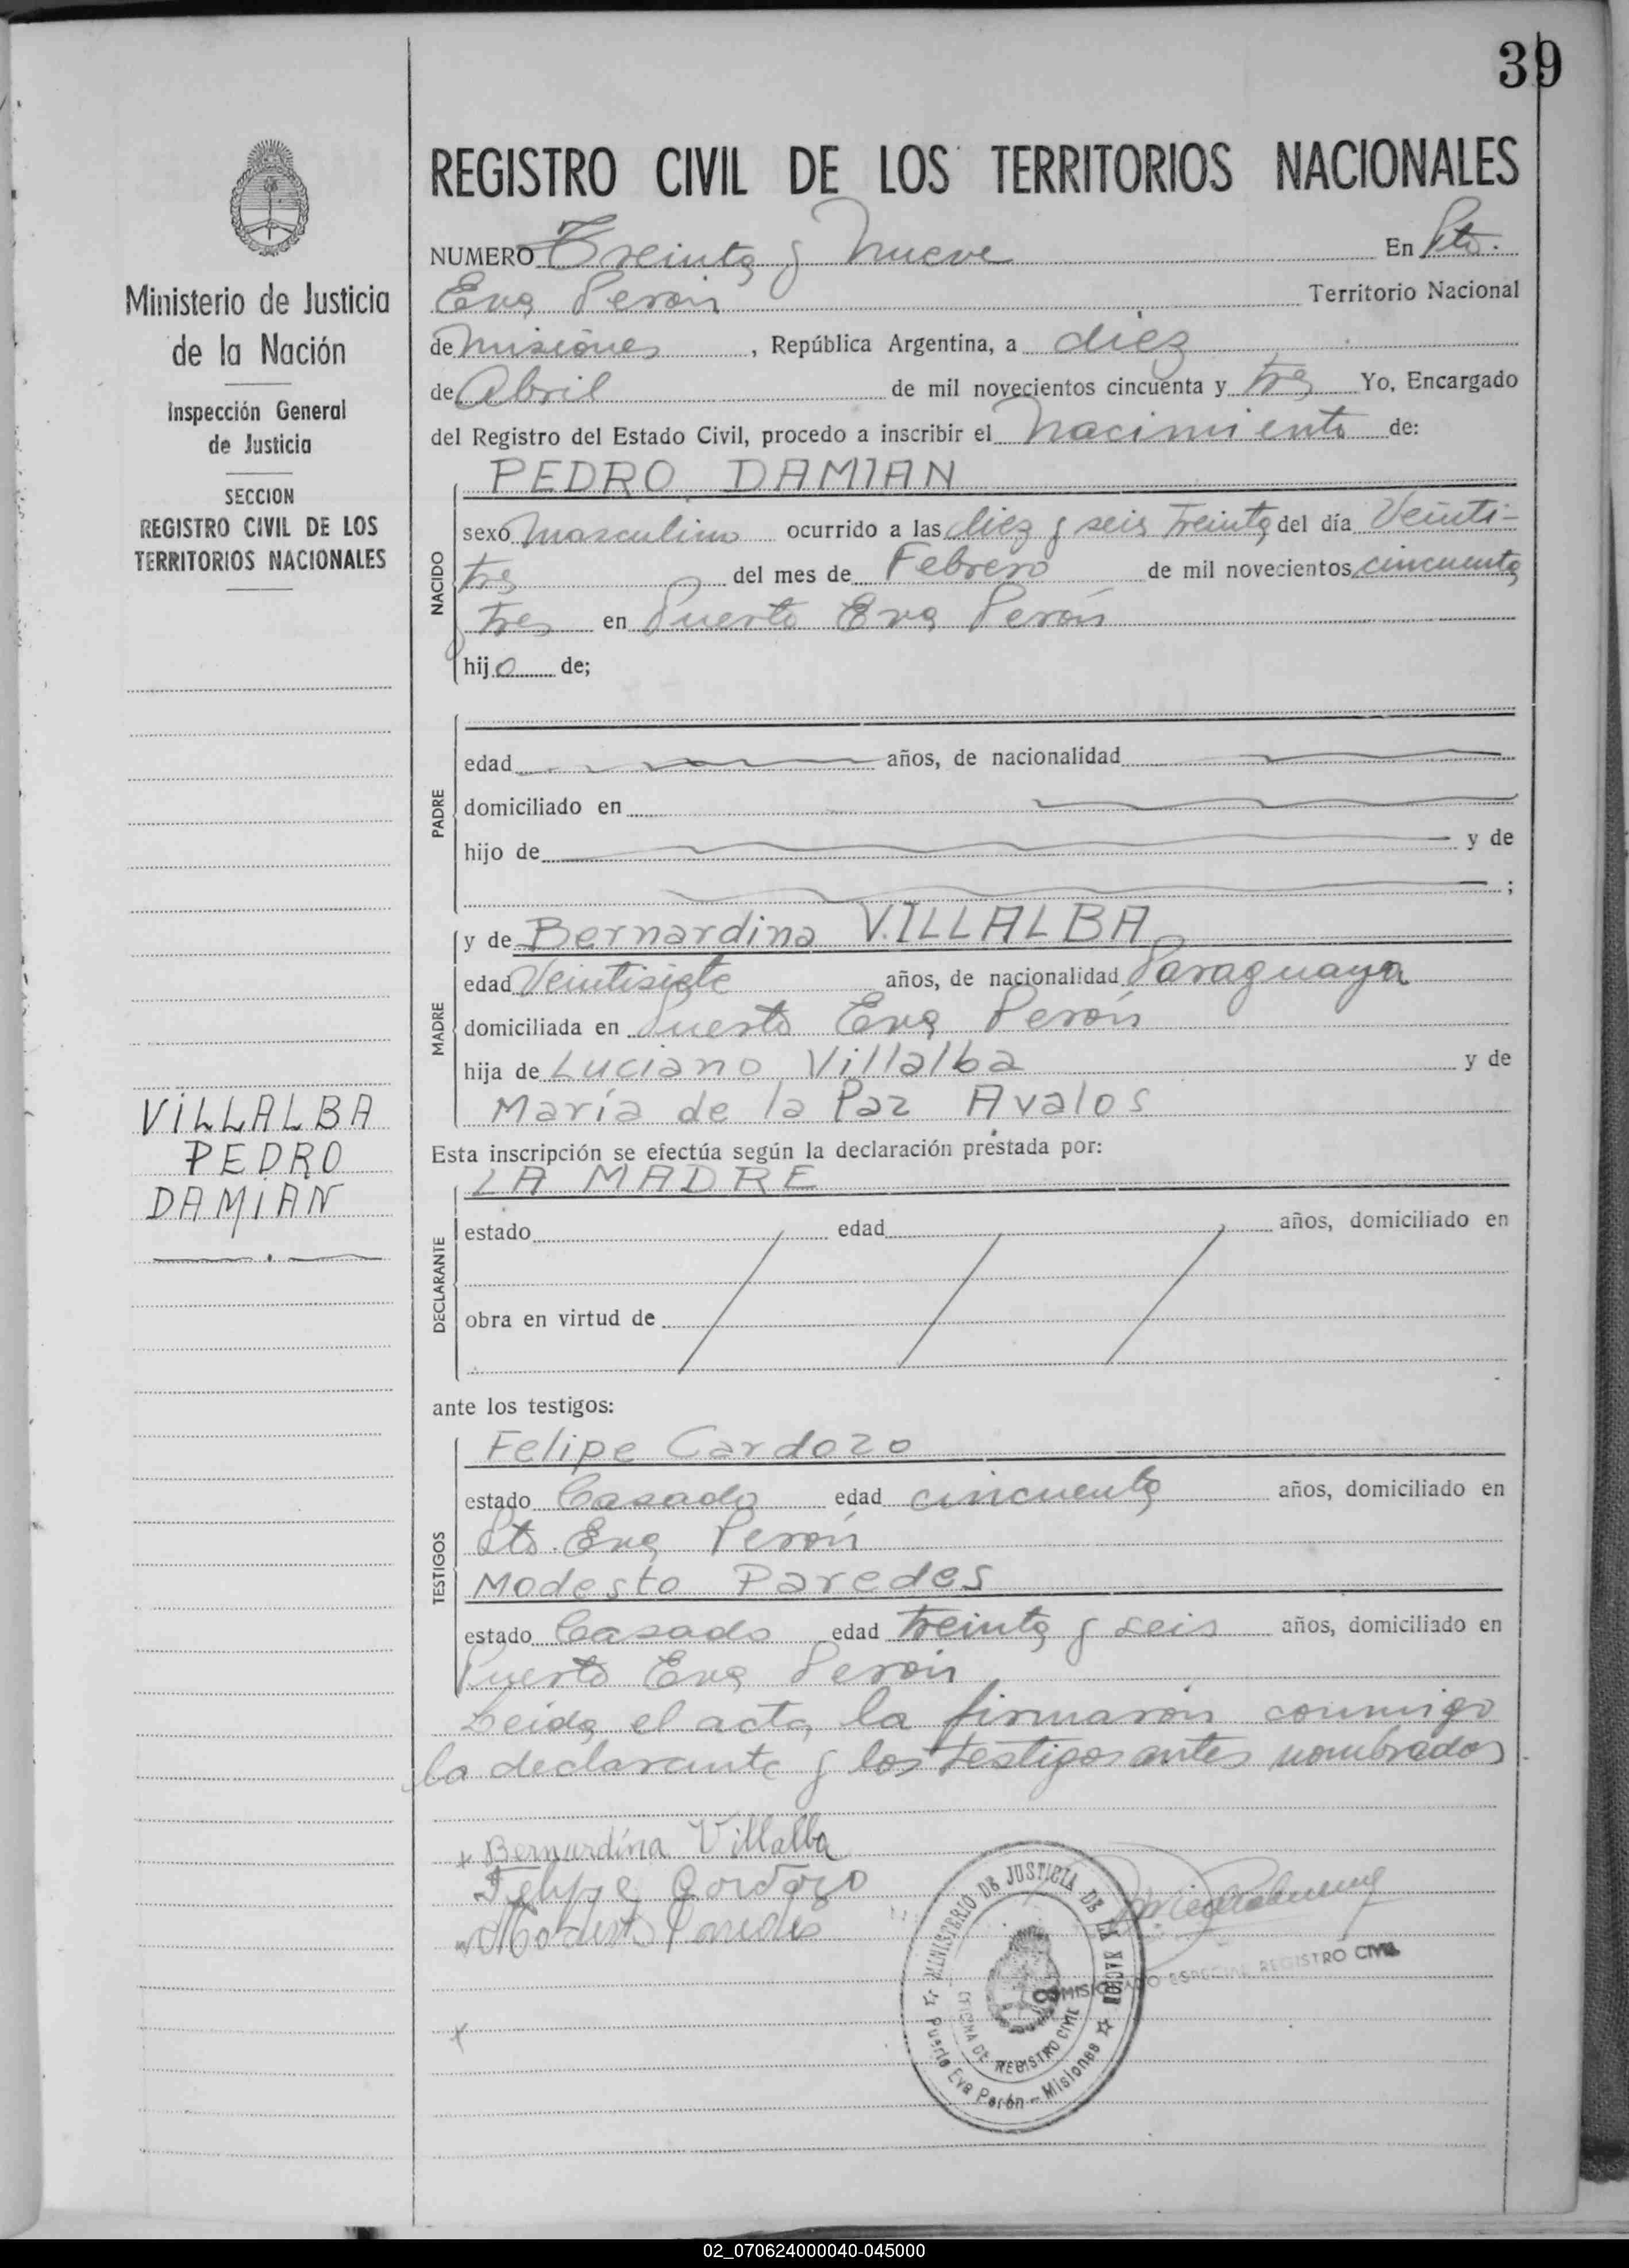 39
Ministerio de Justicia
de la Nación
Inspección General
de Justicia
SECCION
REGISTRO CIVIL DE LOS
TERRITORIOS NACIONALES
VILLALBA
PEDRO
DAMIAN
REGISTRO CIVIL DE LOS TERRITORIOS NACIONALES
NUMERO Treinta y Nueve En Pto.
Eva Perón Territorio Nacional
de Misiones, República Argentina, a diez
de Abril de mil novecientos cincuenta y tres Yo, Encargado
del Registro del Estado Civil, procedo a inscribir el Nacimiento de:
NACIDO
PEDRO DAMIAN
sexo Masculino ocurrido a las diez y seis treinta del día Veinti-
tres del mes de Febrero de mil novecientos cincuenta
y tres en Puerto Eva Perón
hijo de;
PADRE
edad años, de nacionalidad
domiciliado en
hijo de y de
;
MADRE
y de Bernardina VILLALBA
edad Veintisiete años, de nacionalidad Paraguaya
domiciliada en Puerto Eva Perón
hija de Luciano Villalba y de
María de la Paz Avalos
Esta inscripción se efectúa según la declaración prestada por:
DECLARANTE
LA MADRE
estado edad años, domiciliado en
obra en virtud de
ante los testigos:
TESTIGOS
Felipe Cardozo
estado Casado edad cincuenta años, domiciliado en
Pto. Eva Perón
Modesto Paredes
estado Casado edad treinta y seis años, domiciliado en
Puerto Eva Perón
Leida el acta, la firmaron conmigo
la declarante y los testigos antes nombrados
+ Bernardina Villalba
Felipe Cardozo
Modesto Paredes
MINISTERIO DE JUSTICIA DE LA NACION
OFICINA DE REGISTRO CIVIL
Puerto Eva Perón - Misiones
COMISIONADO ESPECIAL REGISTRO CIVIL
02_070624000040-045000